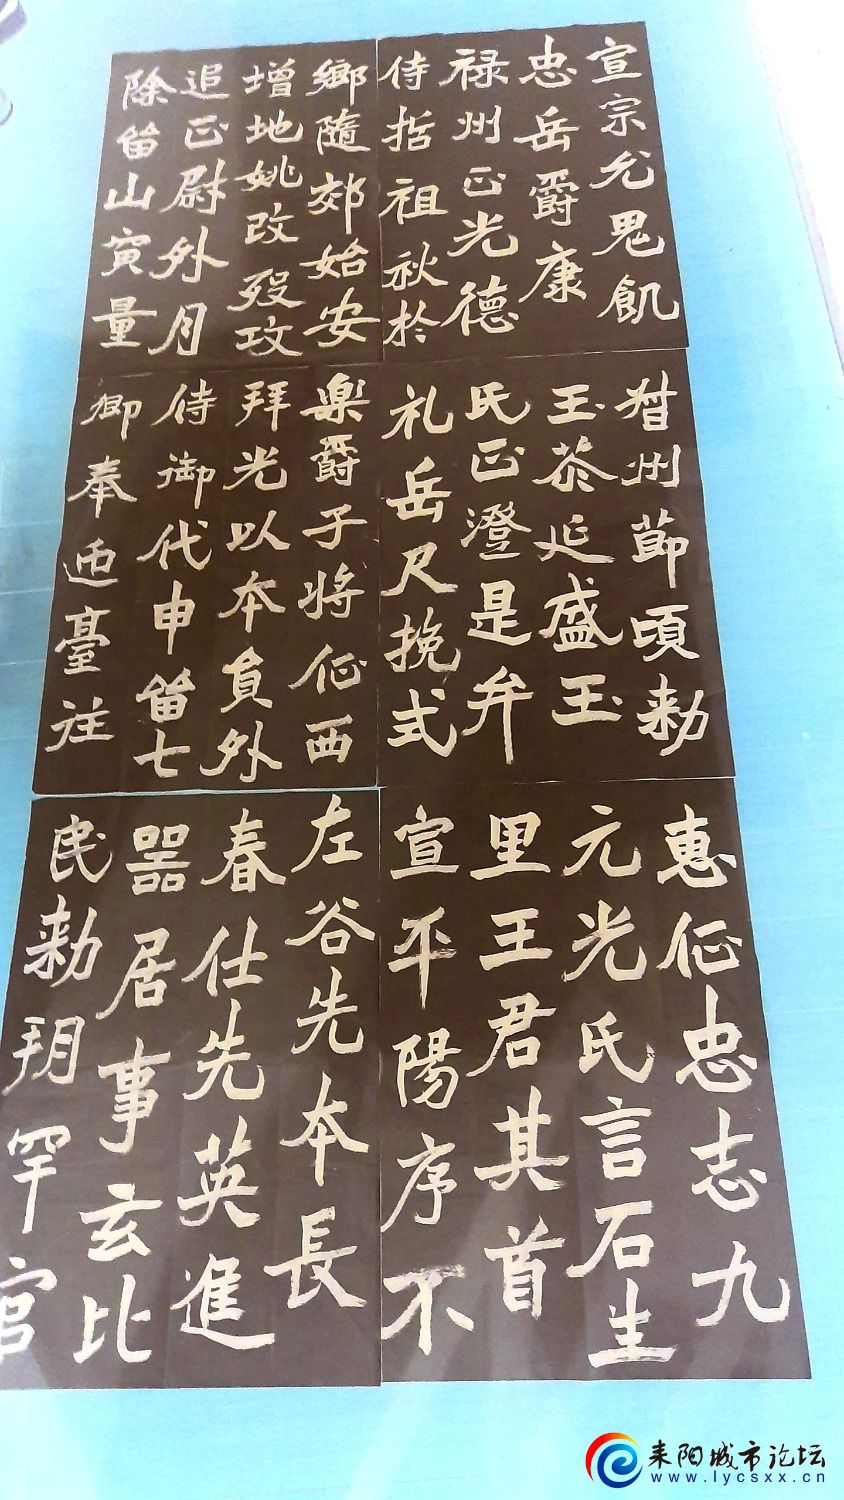 宣宗允鬼飢
忠岳爵康
禄州正光德
侍哲祖秋於
鄉隨郊始安
增地姚改殁攻
追正尉外月
除山寅量
州節頃勅
玉延盛玉
氏正澄是弁
礼岳尺挽式
樂爵子将征西
拜光以本員外
侍御代申七
御奉臺往
惠征忠志九
元光氏言石生
里王君其首
宣平陽序不
左谷先本長
春仕先英進
器居事玄比
民勅罕官
耒阳城市论坛
www.lycsxx.cn